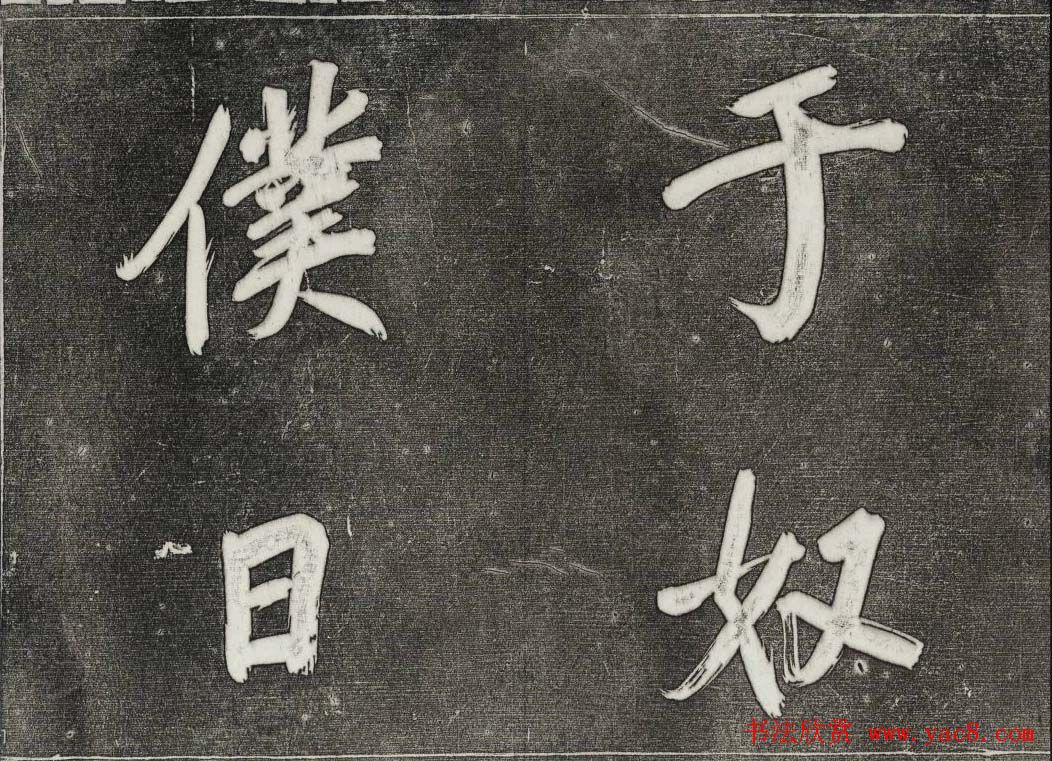 于奴
僕日
书法欣赏 www.yac8.com